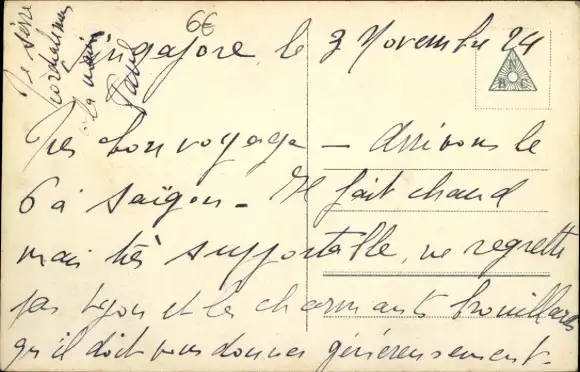 Singapore, le 3 Novembre 24
Très bon voyage - Arrivons le
6 à Saïgon - Il fait chaud
mais très supportable, ne regrette
pas Lyon et le charmants brouillards
qu'il doit vous donner généreusement.
Je serre
cordialement
la main
Paul
6€
A
B C